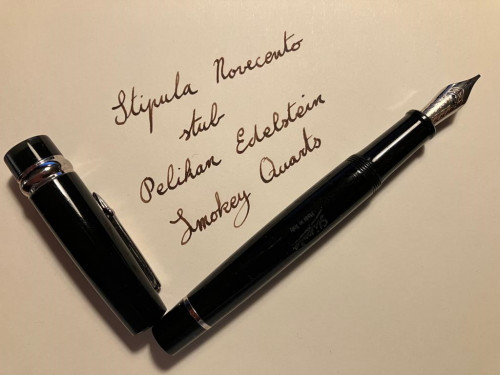 Stipula Novecento
stub
Pelikan Edelstein
Smokey Quarts